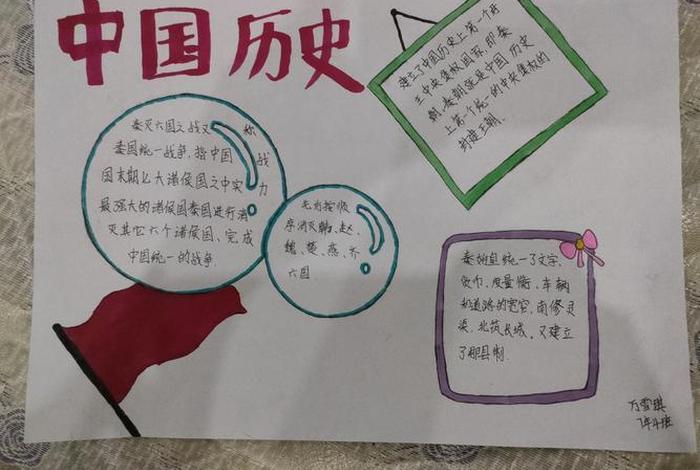 中国历史
建立了中国历史上第一个帝
王中央集权国家,即秦
朝.秦朝就是中国历史
上第一个统一的中央集权的
封建王朝.
秦灭六国之战又称
秦国统一战争,指中国战
国末期七大诸侯国之中实力
最强大的诸侯国秦国进行消
灭其它六个诸侯国、完成
中国统一的战争.
先后按顺
序消灭韩、赵、
魏、楚、燕、齐
六国
秦始皇统一了文字、
货币、度量衡、车辆
和道路的宽窄,南修灵
渠,北筑长城,又建立
了郡县制.
万雪琪
7年4班